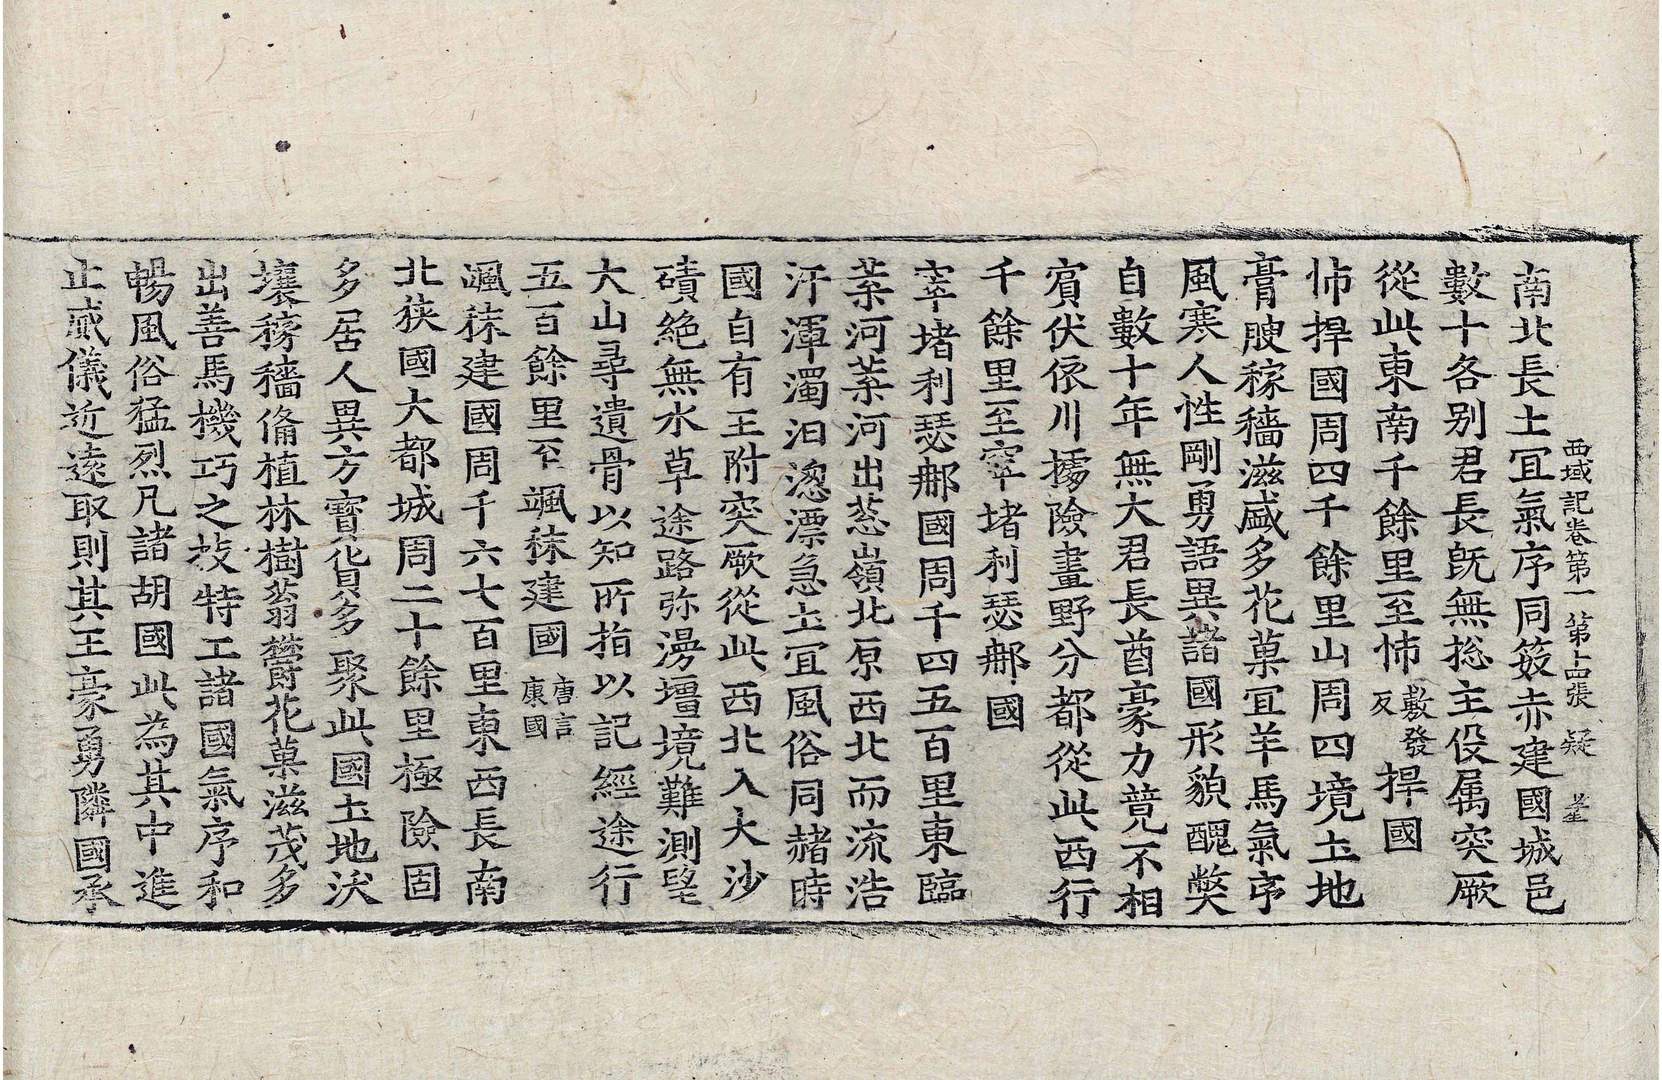 西域記卷第一 第十四張 疑
南北長土冝氣序同笯赤建國城邑
數十各別君長旣無惣主役属突厥
從此東南千餘里至㤄敷發反捍國
㤄捍國周四千餘里山周四境土地
膏腴稼穡滋盛多花菓冝羊馬氣序
風寒人性剛勇語異諸國形貌醜獘
自數十年無大君長酋豪力竟不相
賔伏依川據險畫野分都從此西行
千餘里至窣堵利瑟𨚗國
窣堵利瑟𨚗國周千四五百里東臨
葉河葉河出葱嶺北原西北而流浩
汗渾濁汩淴漂急土冝風俗同赭時
國自有王附突厥從此西北入大沙
磧絕無水草途路弥漫壃境難測望
大山尋遺骨以知所指以記經途行
五百餘里至颯秣建國唐言康國
颯秣建國周千六七百里東西長南
北狹國大都城周二十餘里極險固
多居人異方寶貨多聚此國土地沃
壤稼穡備植林樹蓊欝花菓滋茂多
出善馬機巧之技特工諸國氣序和
暢風俗猛烈凡諸胡國此為其中進
止威儀近遠取則其王豪勇隣國承